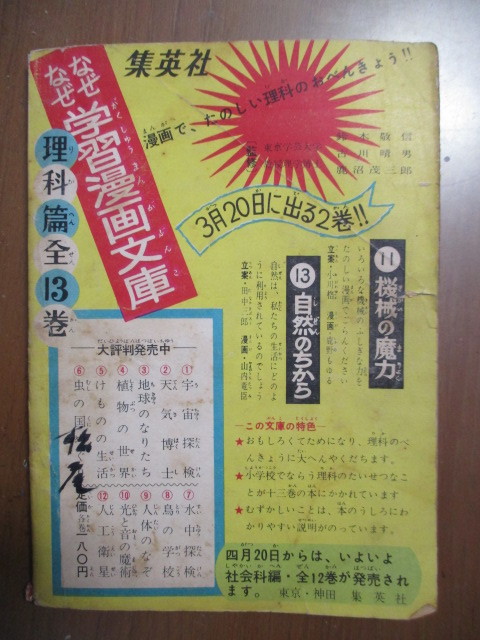 集英社
なぜなぜ学習漫画文庫
がくしゅうまんがぶんこ
理科篇全13巻
漫画で、たのしい理科のおべんきょう!!
東京学芸大学
古川晴男
鹿沼茂三郎
3月20日に出る2巻!!
11 機械の魔力
いろいろな機械のふしぎな力を
たのしい漫画でごらんください
13 自然のちから
自然は、私たちの生活にどのよ
うに利用されているのでしょう
立案・田中三郎 漫画・山内竜臣
大評判発売中
①宇宙探検
②天気博士
③地球のなりたち
④植物の世界
⑤けものの生活
⑥虫の国
⑦水中探検
⑧鳥の学校
⑨人体のなぞ
⑩光と音の魔術
⑫人工衛星
定価各巻一八〇円
―この文庫の特色―
★おもしろくてためになり、理科のべ
んきょうに大へんやくだちます。
★小学校でならう理科のたいせつなこ
とが十三巻の本にかかれています
★むずかしいことは、本のうしろにわ
かりやすい説明がのっています。
四月20日からは、いよいよ
社会科編・全12巻が発売され
ます。 東京・神田 集英社